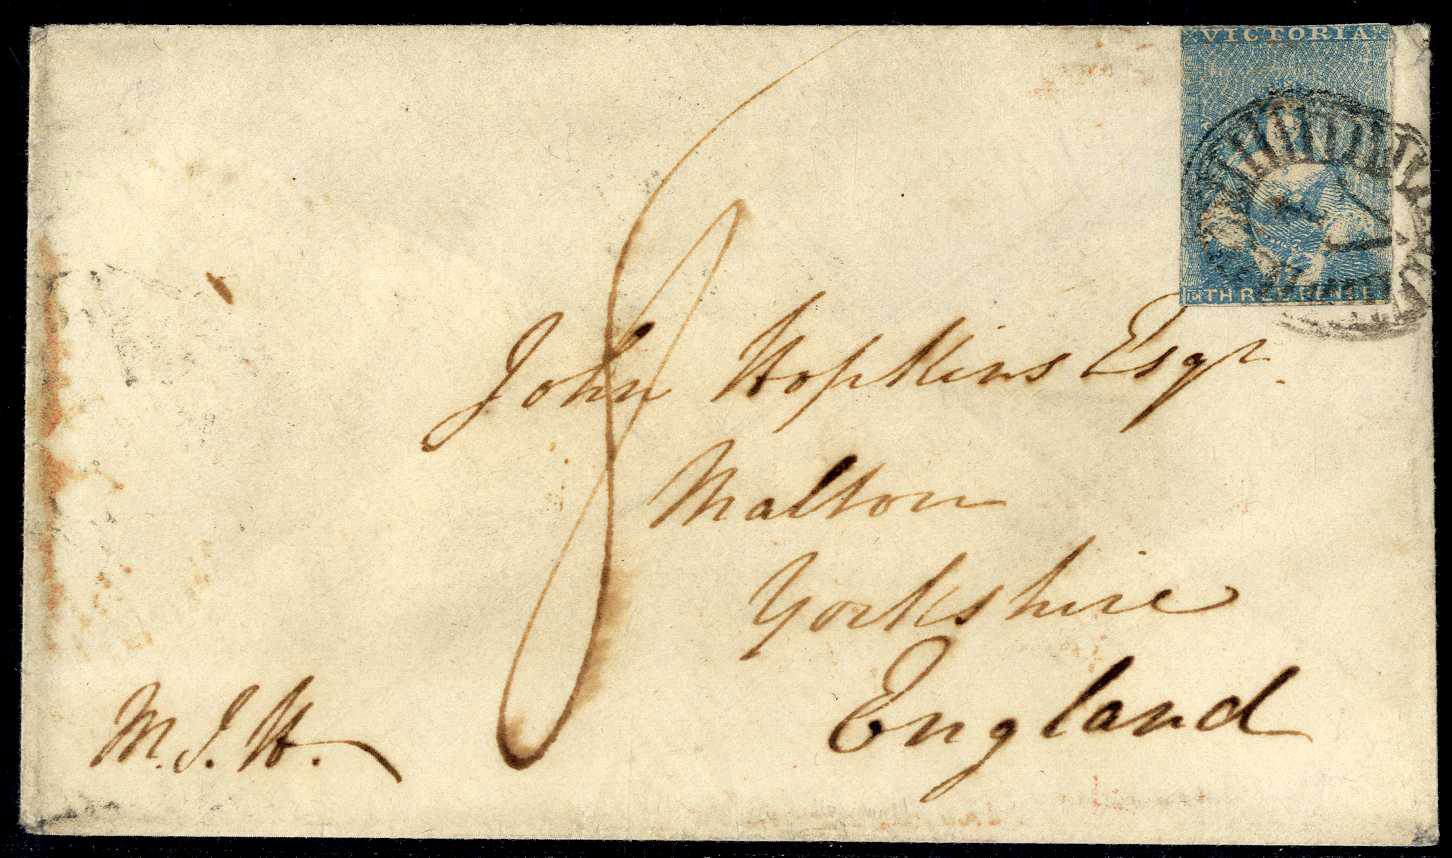 VICTORIA
THREE PENCE
8
John Hopkins Esqr.
Malton
Yorkshire
England
M. J. H.